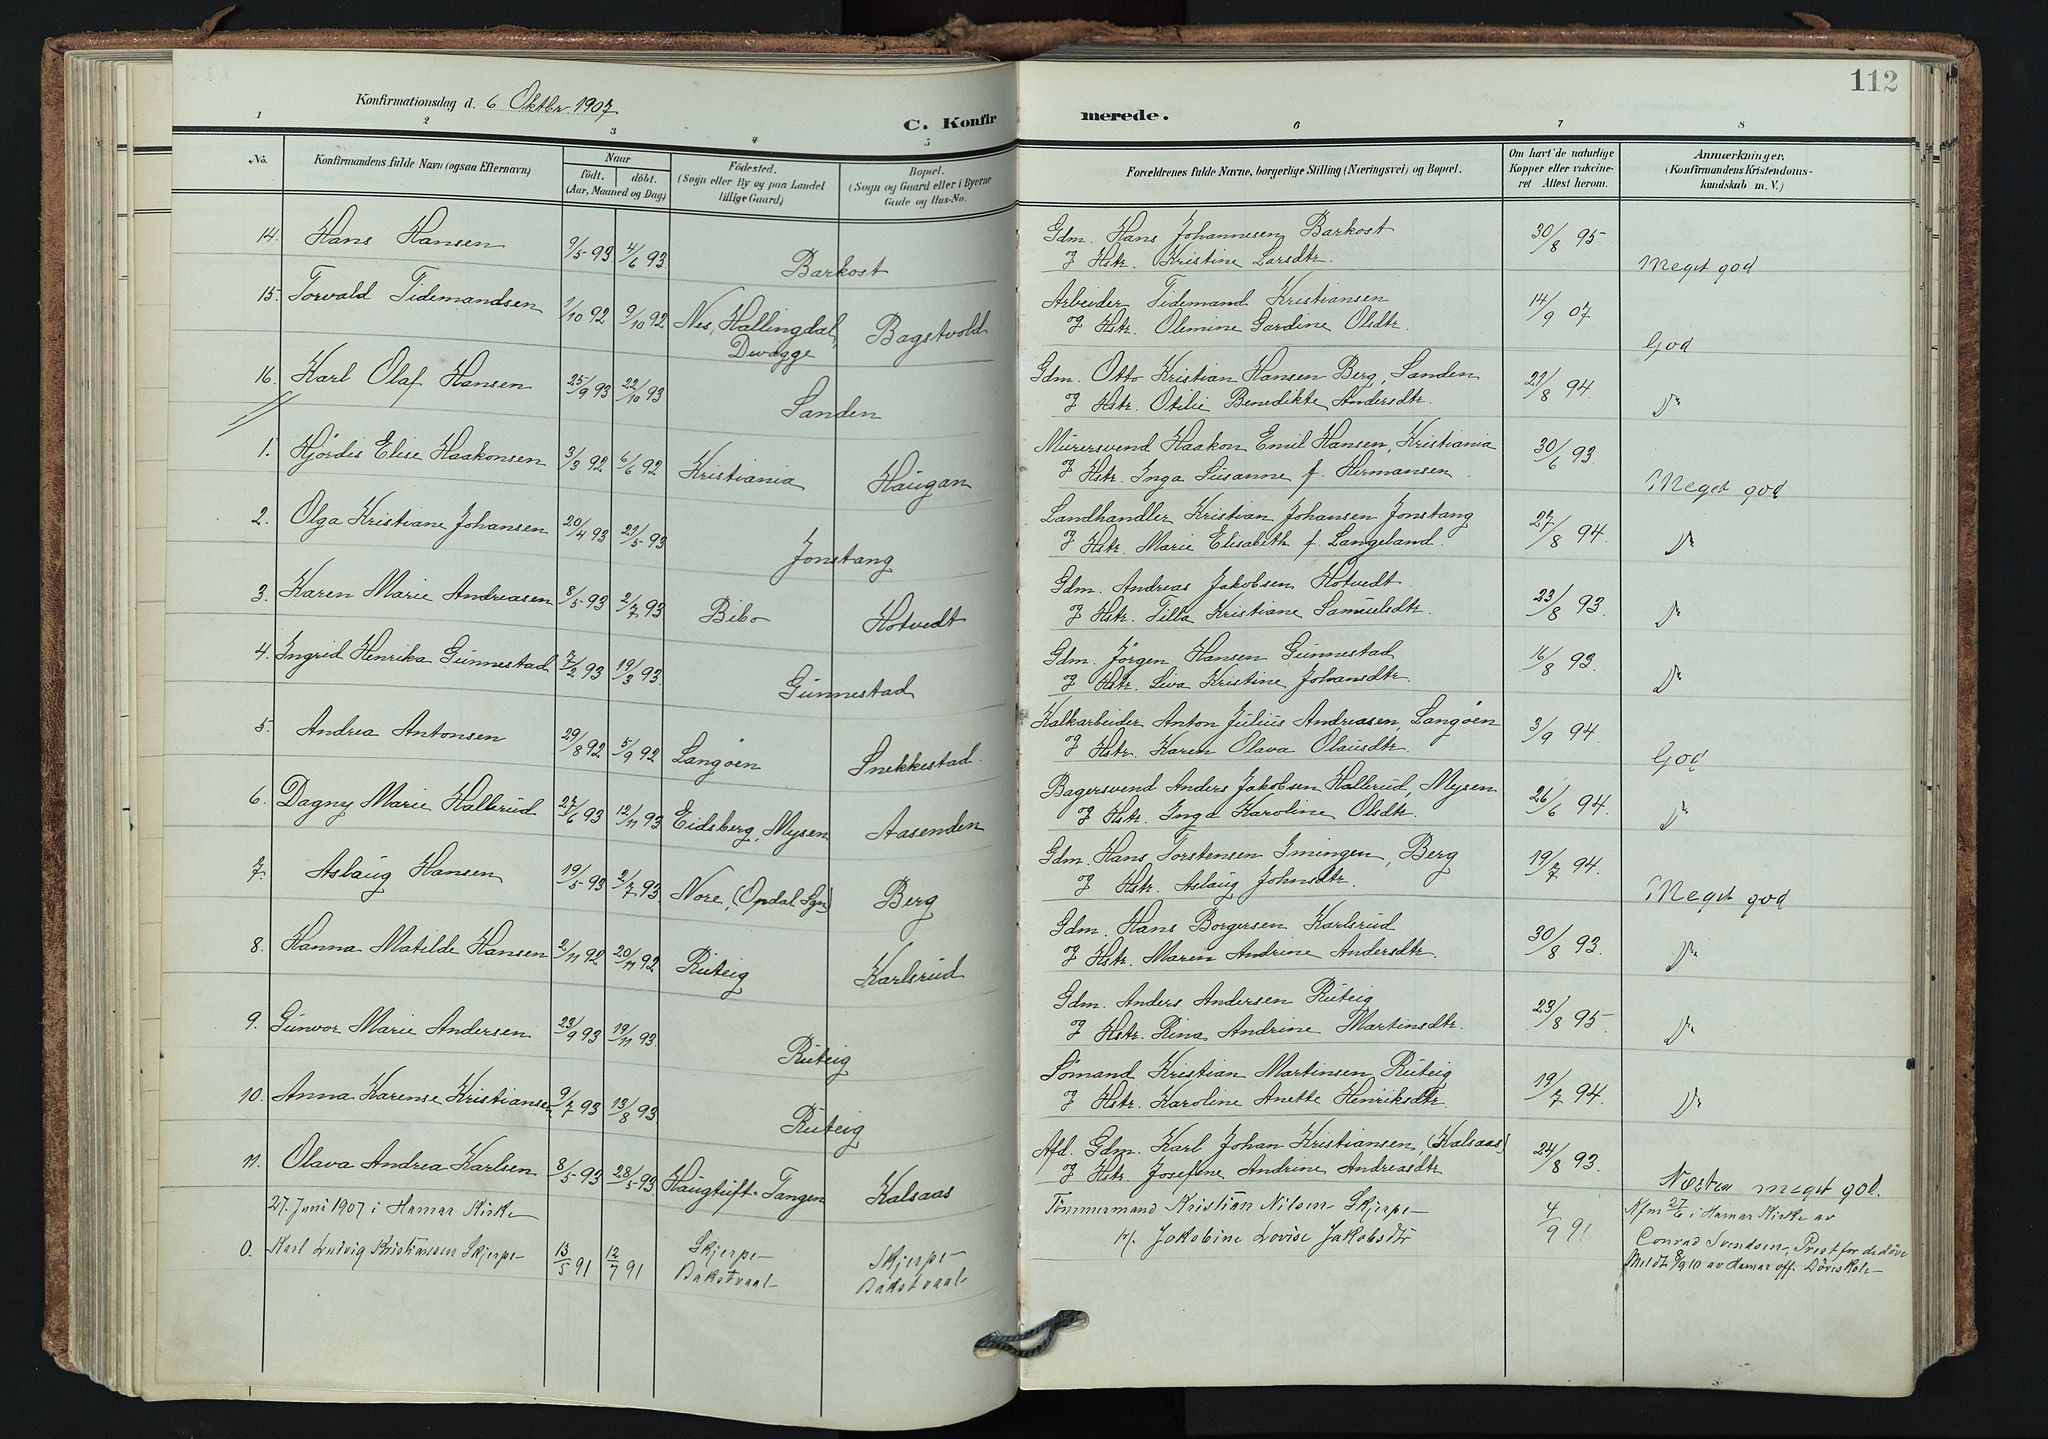 112
Konfirmationsdag d. 6 Oktbr 1907
C. Konfirmerede.
1 2 3 4 5 6 7 8
No. Konfirmandens fulde Navn (ogsaa Efternavn) Naar født. døbt. (Aar, Maaned og Dag) Fødested. (Sogn eller By og paa Landet tillige Gaard) Bopæl. (Sogn og Gaard eller i Byerne Gade og Hus-No. Forældrenes fulde Navne, borgerlige Stilling (Næringsvei) og Bopæl. Om havt de naturlige Kopper eller vakcineret Attest herom. Anmærkninger. (Konfirmandens Kristendomskundskab m. V.)
14. Hans Hansen 9/5 93 4/6 93 Barkost Gdm. Hans Johannesen Barkost 30/8 95 Meget god
og Hstr. Kristine Larsdtr.
15. Torvald Tidemandsen 1/10 92 9/10 92 Nes, Hallingdal, Bagstvold Arbeider Tidemand Kristiansen 14/9 07 God
og Hstr. Olemine Gardine Olsdtr.
16. Karl Olaf Hansen 25/9 93 22/10 93 Sanden Gdm. Otto Kristian Hansen Berg, Sanden 21/8 94. Do
og Hstr. Otilie Benedikte Andersdtr.
1. Hjördis Elise Haakonsen 3/3 92 6/6 92 Kristiania Haugan Murersvend Haakon Emil Hansen, Kristiania 30/6 93. Meget god
og Hstr. Inga Susanne f. Hermansen
2. Olga Kristiane Johansen 20/4 93 21/5 93 Jonstang Landhandler Kristian Johansen Jonstang 27/8 94. Do
og Hstr. Marie Elisabeth f. Langeland.
3. Karen Marie Andreasen 8/5 93 2/7 93 Bibo Hotvedt Gdm. Andreas Jakobsen Hotvedt 23/8 93. Do
og Hstr. Tilla Kristiane Samuelsdtr.
4. Ingrid Henrika Gunnestad 7/2 93 19/3 93. Gunnestad Gdm. Jörgen Hansen Gunnestad 16/8 93. Do
og Hstr. Liva Kristine Johansdtr.
5. Andrea Antonsen 29/8 92 5/9 92 Langøen Snekkestad. Kalkarbeider Anton Julius Andreasen, Langøen 3/9 94. God
og Hstr. Karen Olava Olausdtr.
6. Dagny Marie Hallerud 27/6 93 12/11 93 Eidsberg, Mysen Aasenden Bagersvend Anders Jakobsen Hallerud, Mysen 26/6 94. Do
og Hstr. Inga Karoline Olsdtr.
7. Aslaug Hansen 19/5 93 2/7 93 Nore, (Opdal Sgn) Berg Gdm. Hans Torstensen Imingen, Berg 19/7 94. Meget god
og Hstr. Aslaug Johnsdtr.
8. Hanna Matilde Hansen 2/11 92 20/11 92 Ruteig Karlsrud Gdm. Hans Borgersen Karlsrud 30/8 93. Do
og Hstr. Maren Andrine Andersdtr.
9. Gunvor Marie Andersen 23/9 93 19/11 93. Ruteig Gdm. Anders Andersen Ruteig 23/8 95. Do
og Hstr. Rina Andrine Martinsdtr.
10. Anna Karense Kristiansen 9/7 93 13/8 93 Ruteig Sömand Kristian Martinsen Ruteig 19/7 94. Do
og Hstr. Karoline Anette Henriksdtr.
11. Olava Andrea Karlsen 8/5 93 28/5 93 Haugtuft-Tangen Kalsaas Afd. Gdm. Karl Johan Kristiansen, (Kalsaas) 24/8 93. Næsten meget god.
og Hstr. Josefine Andrine Andreasdtr
27. Juni 1907 i Hamar Kirke
0. Karl Ludvig Kristiansen Skjerpe 13/5 91 12/7 91 Skjerpe Bakstvaal Skjerpe Bakstvaal Tømmermand Kristian Nilsen Skjerpe 4/9 91 Kfm 27/6 i Hamar Kirke av
H. Jakobine Lovise Jakobsdtr Conrad Svendsen, Prest for de døve
Meldt 8/9 10 av Hamar off. Døveskole